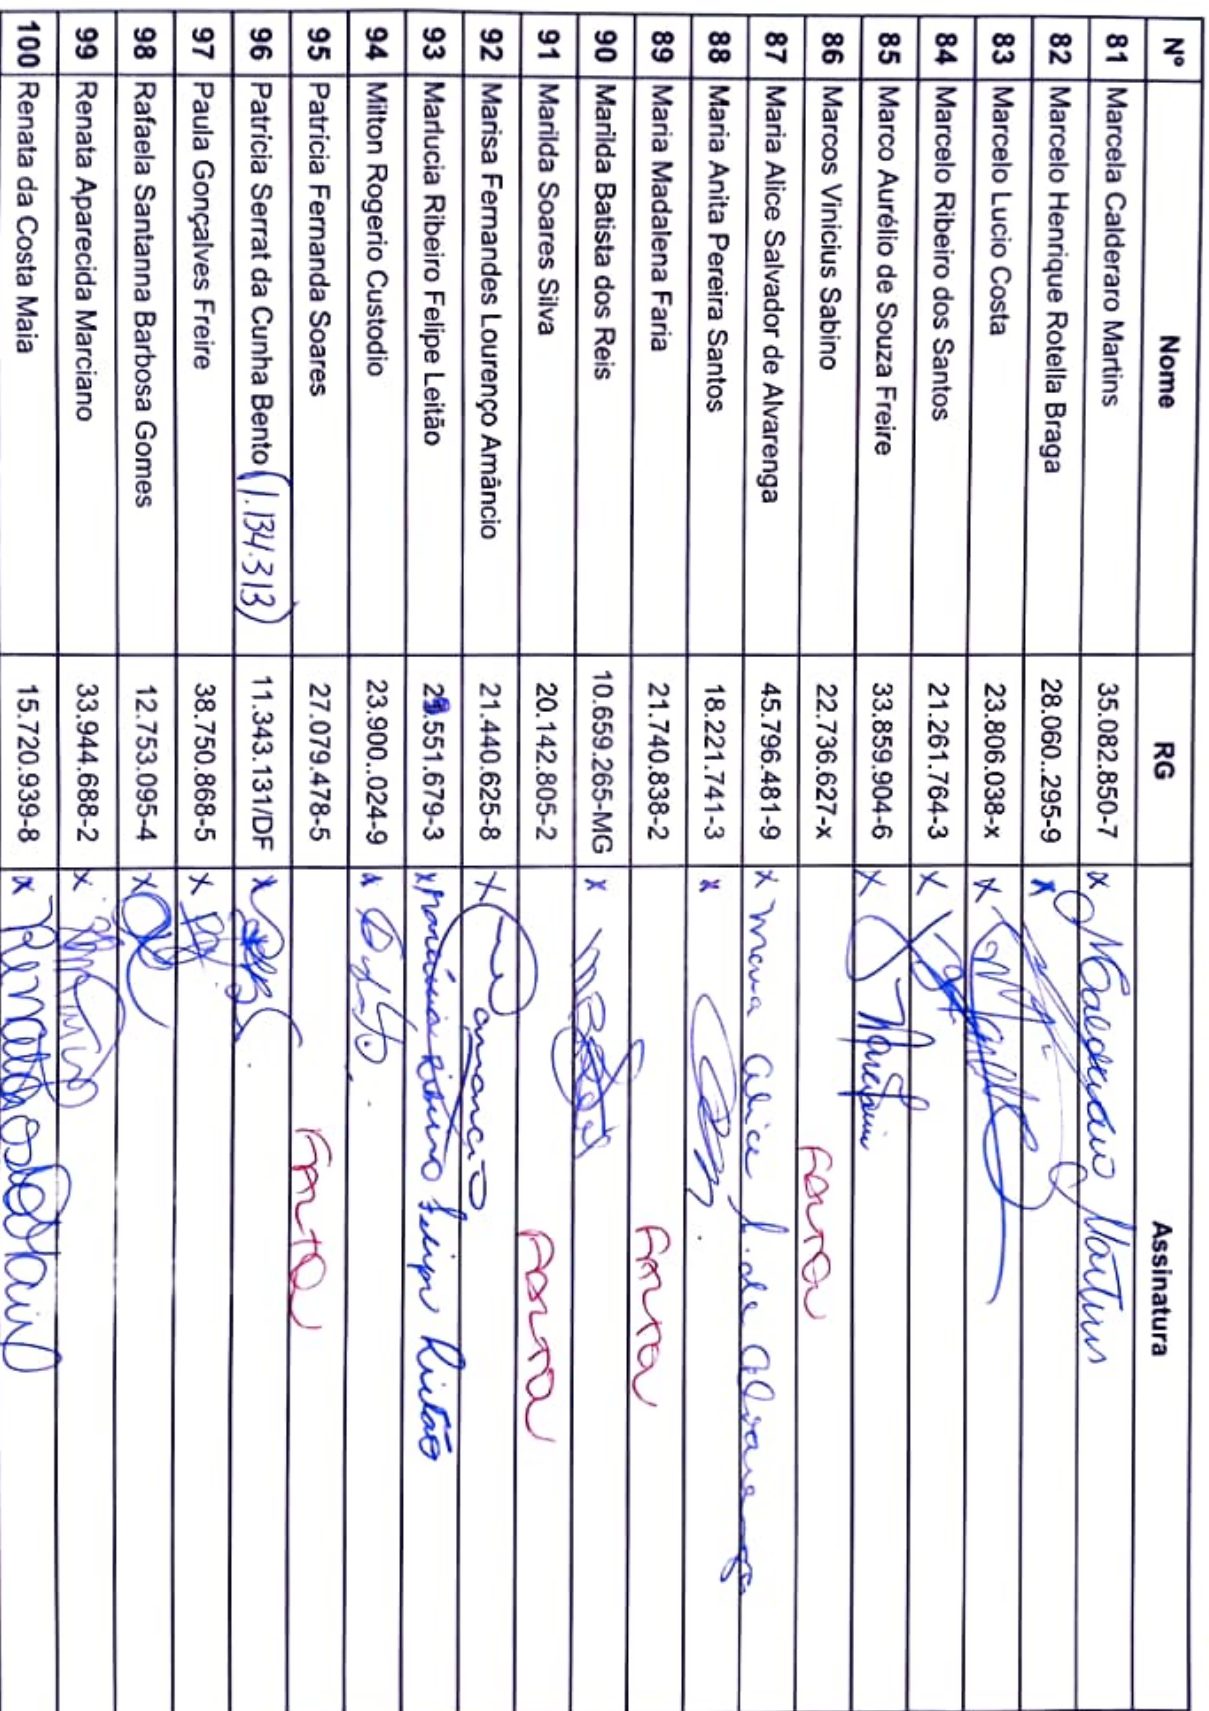 Nº Nome RG Assinatura
81 Marcela Calderaro Martins 35.082.850-7 x MCalderaro Martins
82 Marcelo Henrique Rotella Braga 28.060..295-9 x
83 Marcelo Lucio Costa 23.806.038-x x
84 Marcelo Ribeiro dos Santos 21.261.764-3 x
85 Marco Aurélio de Souza Freire 33.859.904-6 x
86 Marcos Vinicius Sabino 22.736.627-x Falta
87 Maria Alice Salvador de Alvarenga 45.796.481-9 x Maria Alice S. de Alvarenga
88 Maria Anita Pereira Santos 18.221.741-3 x
89 Maria Madalena Faria 21.740.838-2 Falta
90 Marilda Batista dos Reis 10.659.265-MG x
91 Marilda Soares Silva 20.142.805-2 Falta
92 Marisa Fernandes Lourenço Amâncio 21.440.625-8 x Amancio
93 Marlucia Ribeiro Felipe Leitão .551.679-3 x Marlúcia Ribeiro Felipe Leitão
94 Milton Rogerio Custodio 23.900..024-9 x
95 Patricia Fernanda Soares 27.079.478-5 Falta
96 Patricia Serrat da Cunha Bento (1.134.313) 11.343.131/DF x
97 Paula Gonçalves Freire 38.750.868-5 x
98 Rafaela Santanna Barbosa Gomes 12.753.095-4 x
99 Renata Aparecida Marciano 33.944.688-2 x
100 Renata da Costa Maia 15.720.939-8 x Renata